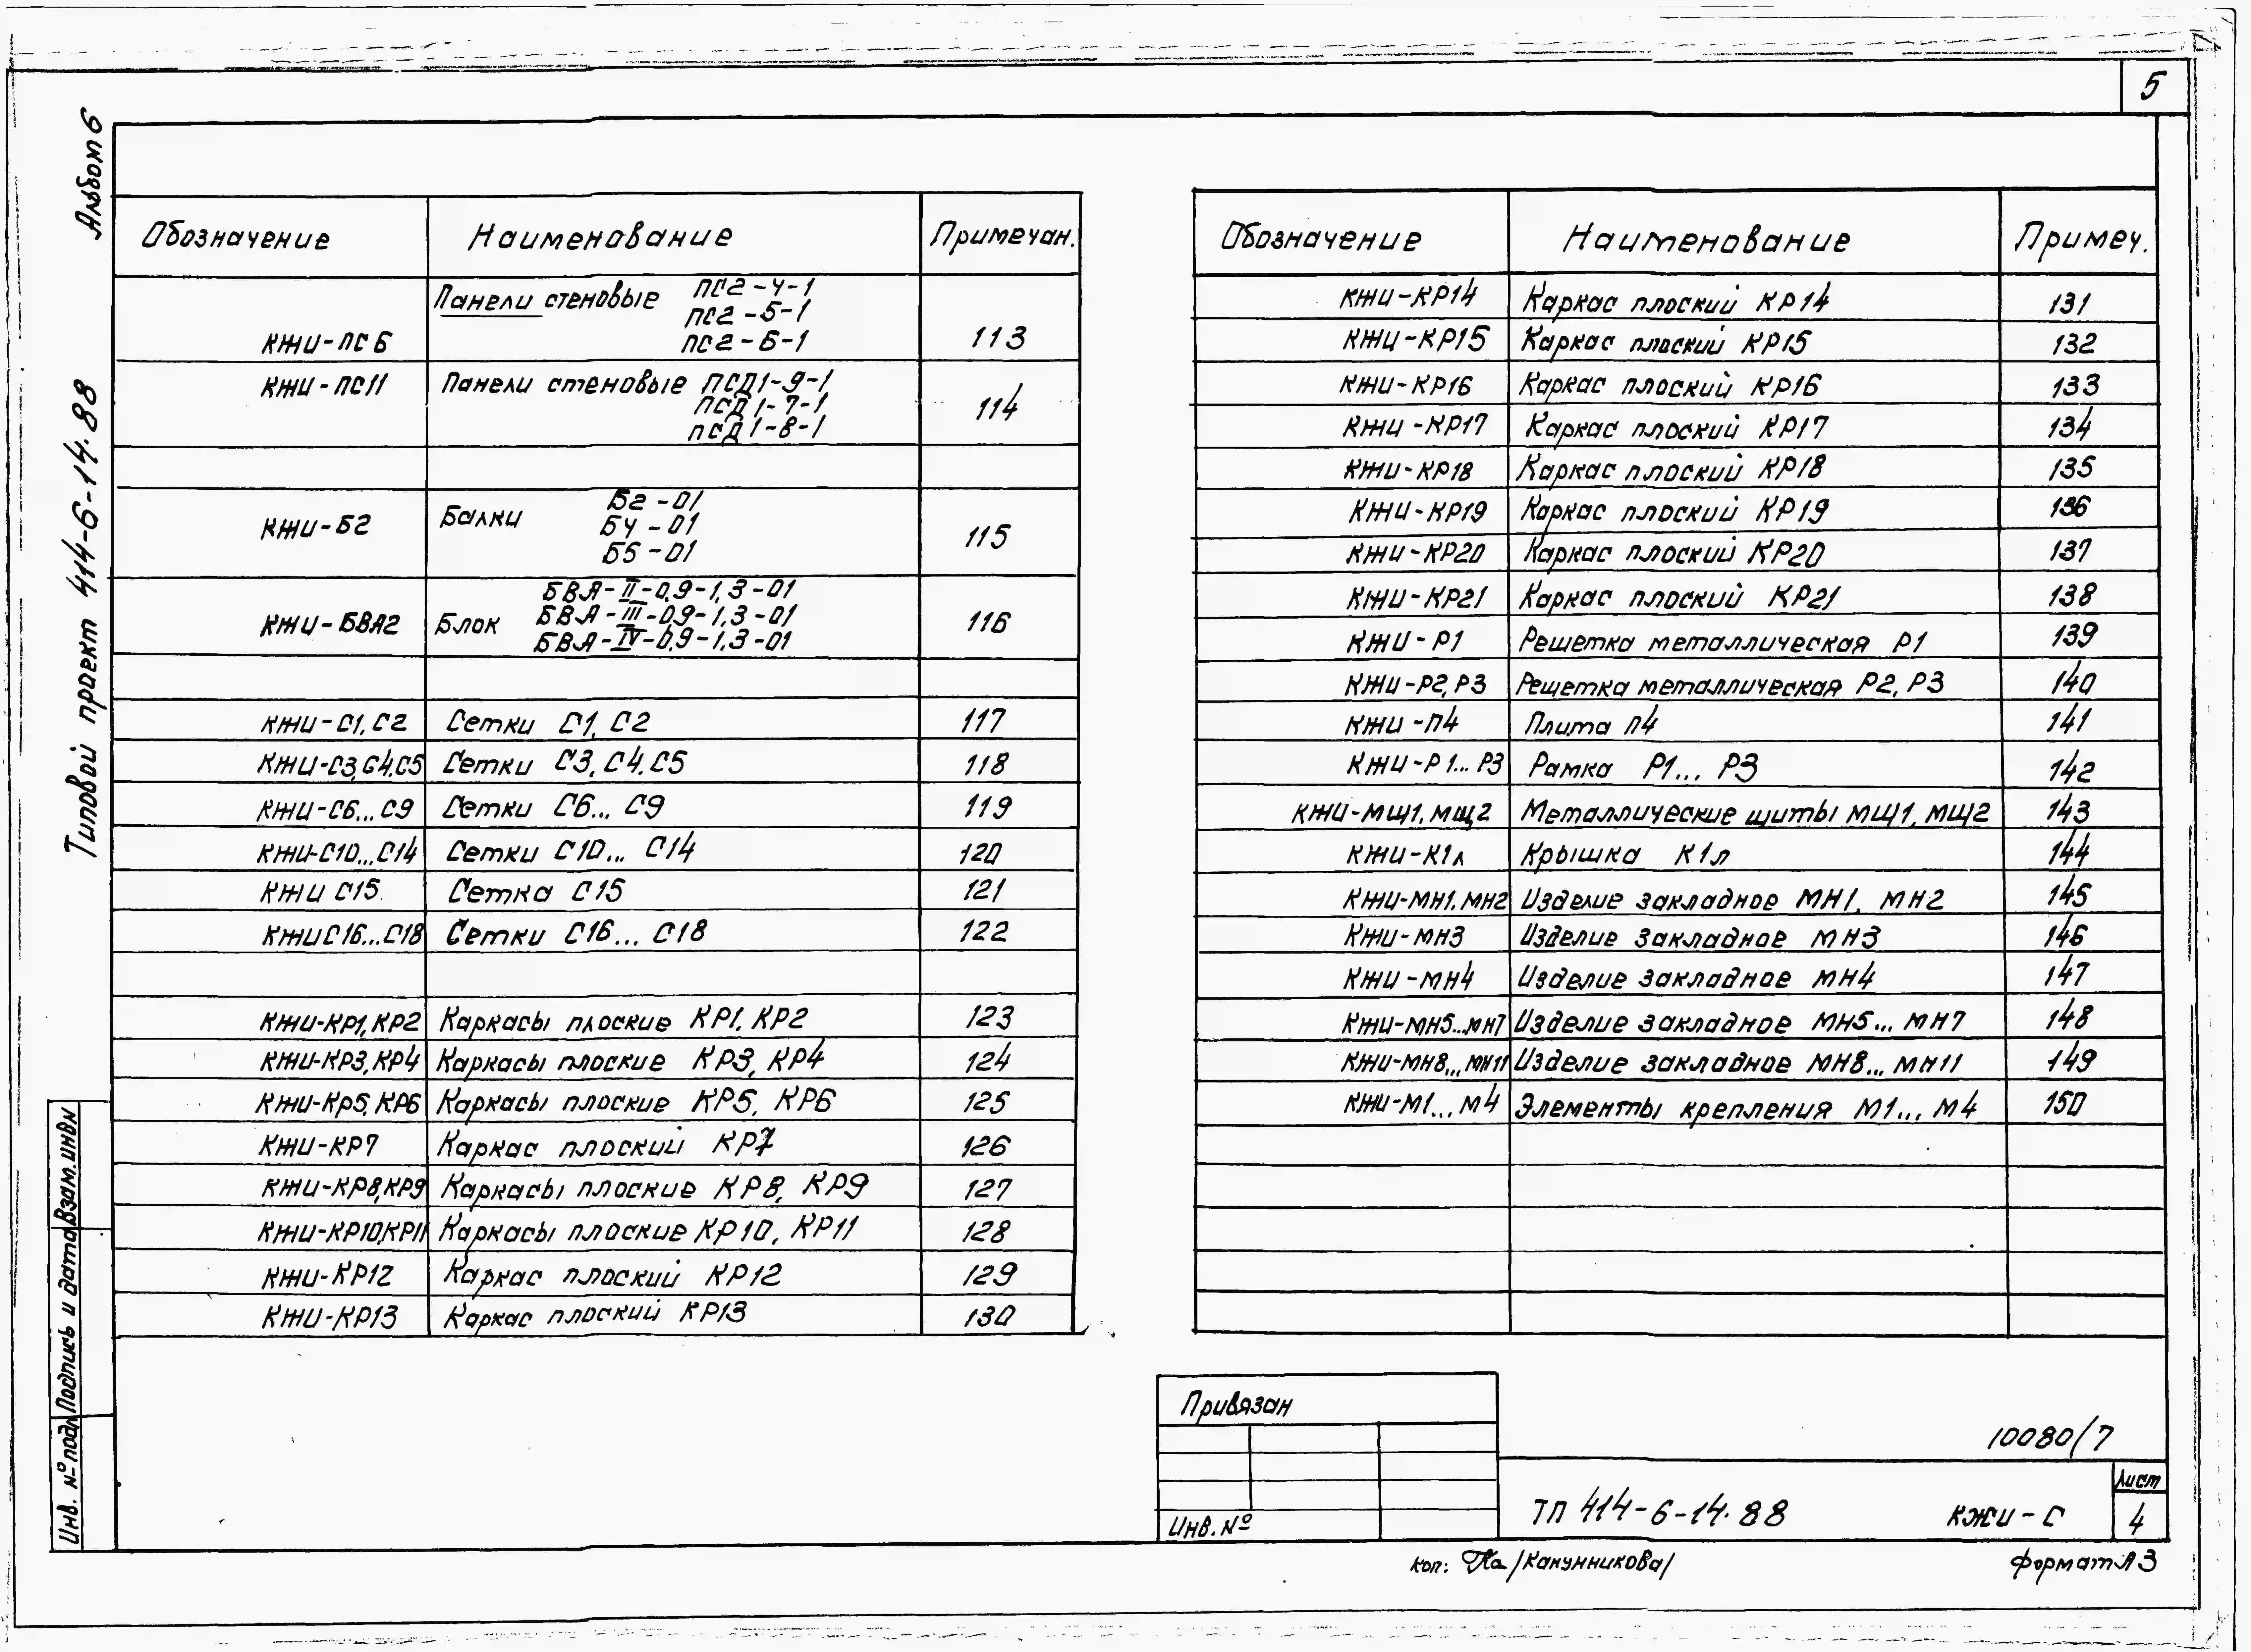 5
Альбом 6
Типовой проект 414-6-14.88
Обозначение Наименование Примечан.
КЖИ-ПС6 Панели стеновые ПС2-4-1
ПС2-5-1
ПС2-6-1 113
КЖИ-ПС11 Панели стеновые ПСД1-9-1
ПСД1-7-1 114
ПСД1-8-1
КЖИ-Б2 Балки Б2-01
Б4-01
Б5-01 115
КЖИ-БВЯ2 Блок БВЯ-II-0,9-1,3-01
БВЯ-III-0,9-1,3-01 116
БВЯ-IV-0,9-1,3-01
КЖИ-С1, С2 Сетки С1, С2 117
КЖИ-С3, С4, С5 Сетки С3, С4, С5 118
КЖИ-С6... С9 Сетки С6... С9 119
КЖИ-С10...С14 Сетки С10... С14 120
КЖИ С15 Сетка С15 121
КЖИ С16...С18 Сетки С16... С18 122
КЖИ-КР1, КР2 Каркасы плоские КР1, КР2 123
КЖИ-КР3, КР4 Каркасы плоские КР3, КР4 124
КЖИ-КР5, КР6 Каркасы плоские КР5, КР6 125
КЖИ-КР7 Каркас плоский КР7 126
КЖИ-КР8, КР9 Каркасы плоские КР8, КР9 127
КЖИ-КР10, КР11 Каркасы плоские КР10, КР11 128
КЖИ-КР12 Каркас плоский КР12 129
КЖИ-КР13 Каркас плоский КР13 130
Обозначение Наименование Примеч.
КЖИ-КР14 Каркас плоский КР14 131
КЖИ-КР15 Каркас плоский КР15 132
КЖИ-КР16 Каркас плоский КР16 133
КЖИ-КР17 Каркас плоский КР17 134
КЖИ-КР18 Каркас плоский КР18 135
КЖИ-КР19 Каркас плоский КР19 136
КЖИ-КР20 Каркас плоский КР20 137
КЖИ-КР21 Каркас плоский КР21 138
КЖИ-Р1 Решетка металлическая Р1 139
КЖИ-Р2, Р3 Решетка металлическая Р2, Р3 140
КЖИ-П4 Плита П4 141
КЖИ-Р1... Р3 Рамка Р1... Р3 142
КЖИ-МЩ1, МЩ2 Металлические щиты МЩ1, МЩ2 143
КЖИ-К1л Крышка К1л 144
КЖИ-МН1, МН2 Изделие закладное МН1, МН2 145
КЖИ-МН3 Изделие закладное МН3 146
КЖИ-МН4 Изделие закладное МН4 147
КЖИ-МН5...МН7 Изделие закладное МН5... МН7 148
КЖИ-МН8... МН11 Изделие закладное МН8... МН11 149
КЖИ-М1... М4 Элементы крепления М1... М4 150
Взам.инвN
Подпись и дата
Инв. № подл
Привязан
Инв. №
10080/7
ТП 414-6-14.88 КЖИ-С
Лист
4
Коп: /Канунникова/
Формат А3